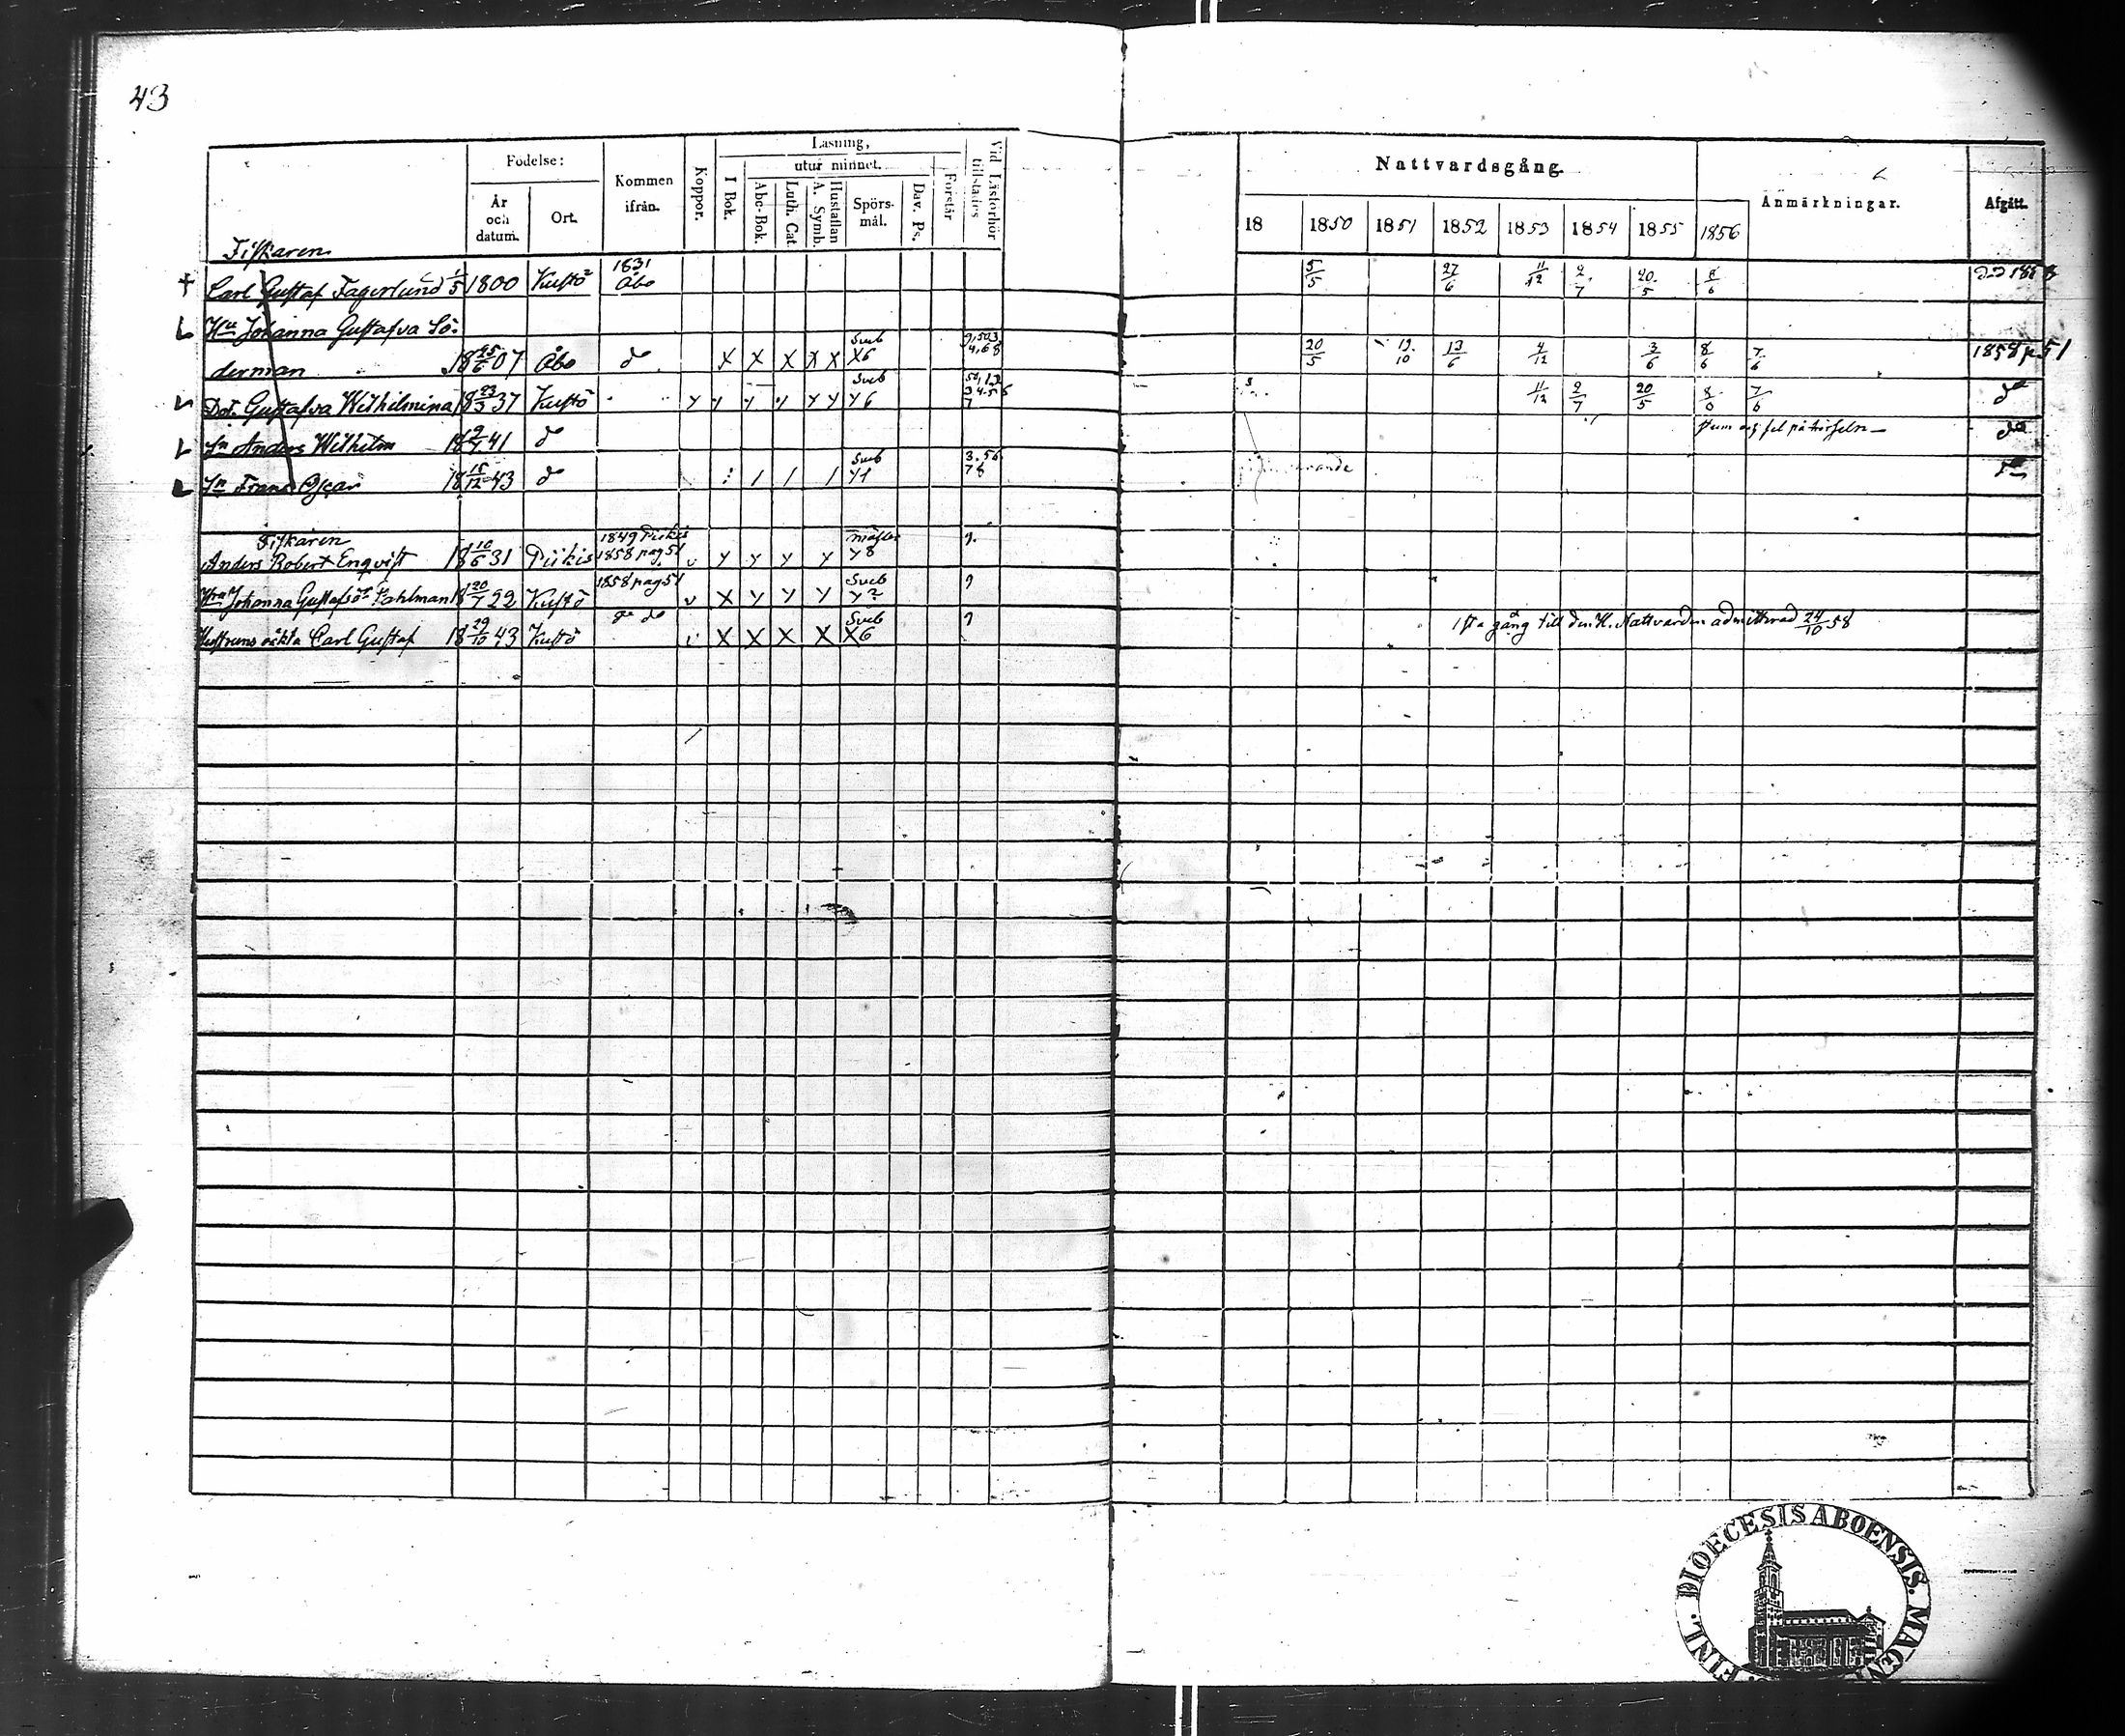 43
Födelse:
Läsning,
utur minnet.
År och datum.
Ort.
Kommen ifrån.
Koppor.
I Bok.
Abc-Bok.
Luth. Cat.
A. Symb. Hustaflan
Spörs-mål.
Dav. Ps.
Förstår
Vid Läsförhör tillstädes
Nattvardsgång.
18 1850 1851 1852 1853 1854 1855 1856
Anmärkningar.
Afgått.
Fiskaren
Carl Gustaf Fagerlund 1/5 1800 Kustö 1831 Åbo 5/5 27/6 11/12 2/7 20/5 8/6
Hu Johanna Gustafva Sö-
derman 18 25/6 07 Åbo do X X X X X Sveb X6 20/5 19/10 13/6 4/12 3/6 8/6 7/6 1858 p 51
Dotr Gustafva Wilhelmina 18 23/3 37 Kustö y y y y y y Sveb y6 11/12 2/7 20/5 8/6 7/6 do
Sn Anders Wilhelm 18 9/7 41 do do
Sn Frans Oscar 18 15/12 43 do / / / Sveb y1 3.56 78 do
Fiskaren
Anders Robert Enqvist 18 10/6 31 Piikis 1849 Piikis 1858 pag 51 v y y y y y8 9.
Hua Johanna Gustafsdr Pahlman 18 20/7 22 Kustö 1858 pag 51 v X y y y Sveb y2 9
Hustruns oäkta Carl Gustaf 18 29/10 43 Kustö do v X X X X Sveb X6 9 1sta gång till den H. Nattvarden admitterad 24/10 58
FINL. DIOECESIS ABOENSIS. MAGN.